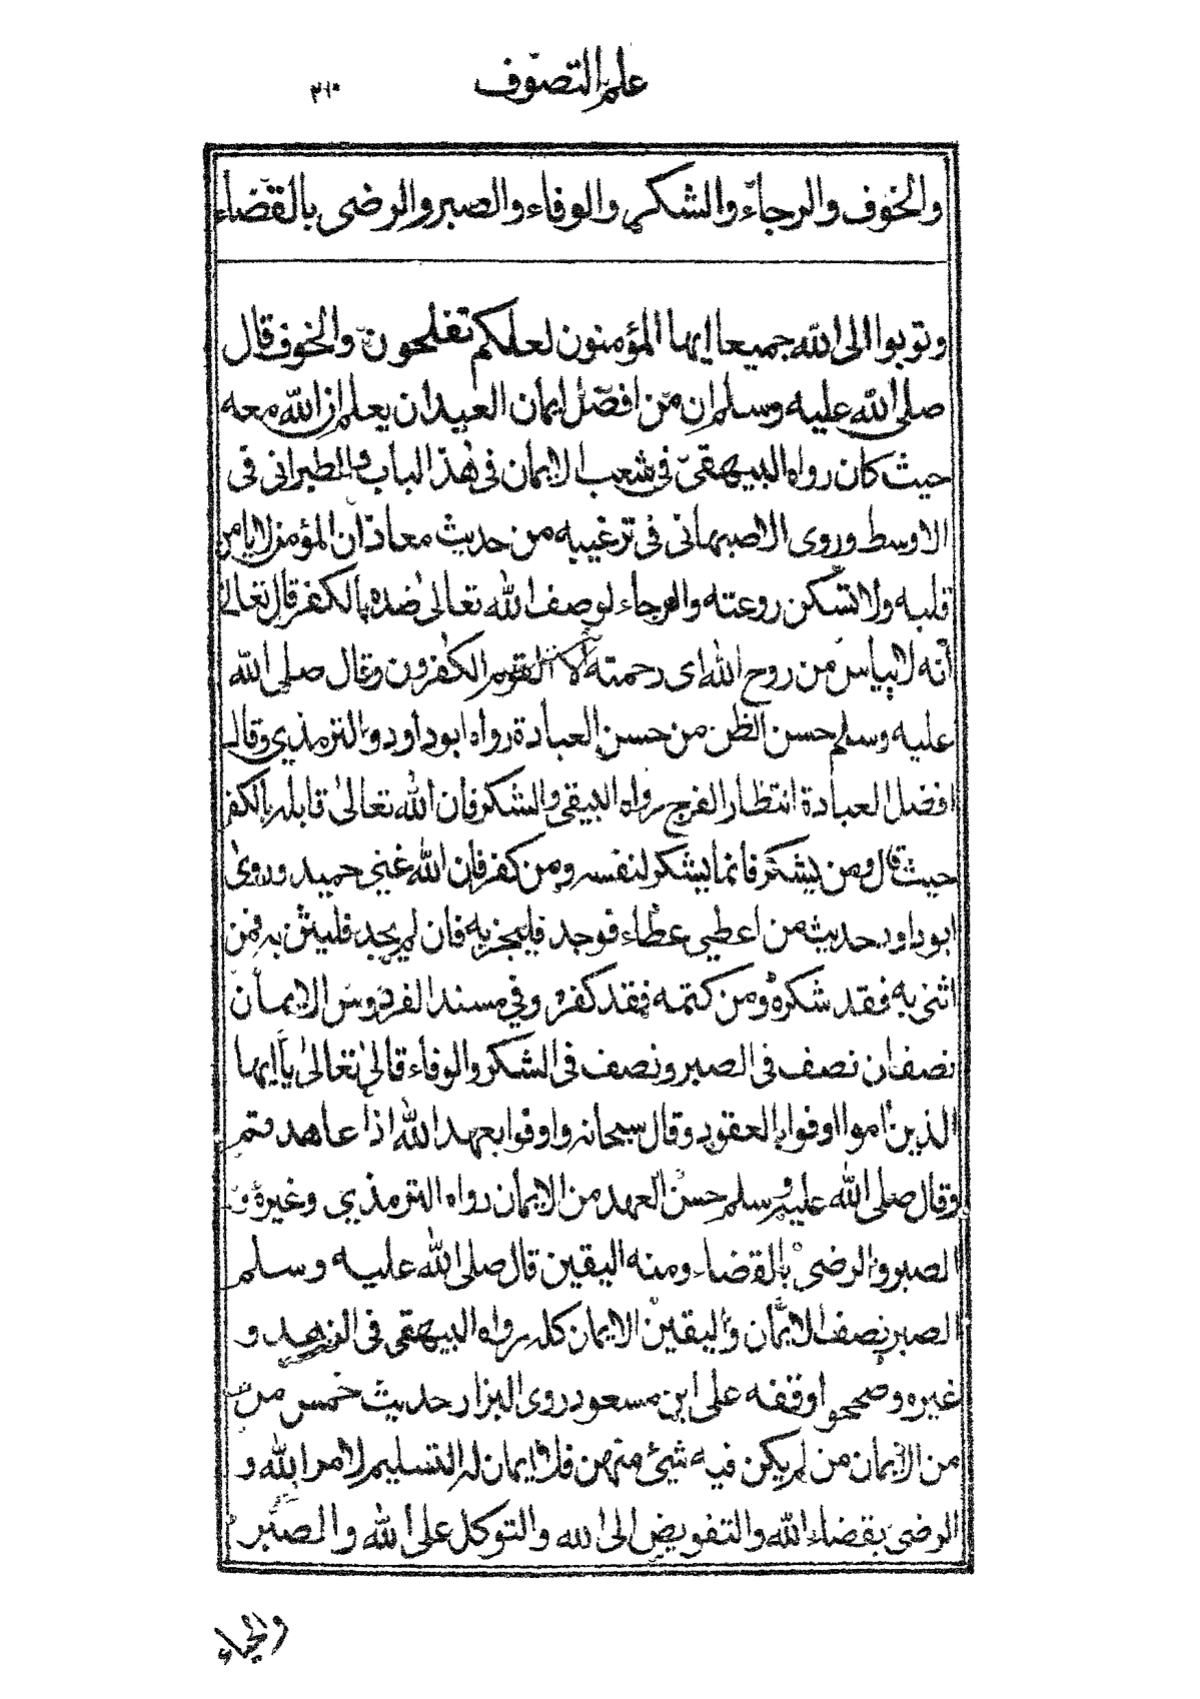 علم التصوف ٢١٠
والخوف والرجاء والشكر والوفاء والصبر والرضى بالقضاء
وتوبوا الى الله جميعا ايها المؤمنون لعلكم تفلحون والخوف قال
صلى الله عليه وسلم ان من افضل ايمان العبد ان يعلم ان الله معه
حيث كان رواه البيهقى فى شعب الايمان فى هذا الباب والطبرانى فى
الاوسط وروى الاصبهانى فى ترغيبه من حديث معاذ ان المؤمن لا يامن
قلبه ولا تسكن روعته والرجاء لوصف الله تعالى ضده بالكفر قال تعالى
انه لا ييأس من روح الله اى رحمته الا القوم الكفرون وقال صلى الله
عليه وسلم حسن الظن من حسن العبادة رواه ابوداود والترمذي وقال
افضل العبادة انتظار الفرج رواه البيقى والشكر فان الله تعالى قابله بالكفر
حيث قال ومن يشكر فانما يشكر لنفسه ومن كفر فان الله غني حميد وروى
ابوداود حديث من اعطي عطاء فوجد فليجز به فان لم يجد فليثن به فمن
اثنى به فقد شكره ومن كتمه فقد كفره وفي مسند الفردوس الايمان
نصفان نصف فى الصبر ونصف فى الشكر والوفاء قال تعالى يا ايها
الذين امنوا اوفوا بالعقود وقال سبحانه واوفوا بعهد الله اذا عاهدتم
وقال صلى الله عليه وسلم حسن العهد من الايمان رواه الترمذي وغيره و
الصبر والرضى بالقضاء ومنه اليقين قال صلى الله عليه وسلم
الصبر نصف الايمان واليقين الايمان كله رواه البيهقى فى الزهد و
غيره وصححوا وقفه على ابن مسعود روى البزار حديث خمس من
من الايمان من لم يكن فيه شيئ منهن فلا ايمان له التسليم لامر الله و
الرضى بقضاء الله والتفويض الى الله والتوكل على الله والصبر
والحياء